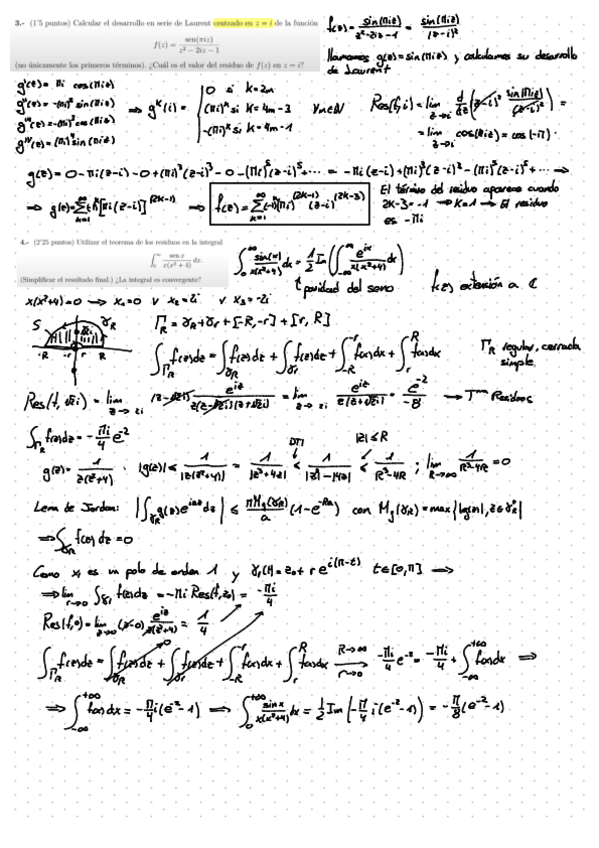 3.- (1'5 puntos) Calcular el desarrollo en serie de Laurent centrado en z = i de la función
f(z) = sen(πiz) / z² − 2iz − 1
(no únicamente los primeros términos). ¿Cuál es el valor del residuo de f(z) en z = i?
f(z) = sin(πiz)/z²-2iz-1 = sin(πiz)/(z-i)²
llamamos g(z)=sin(πiz) y calculamos su desarrollo
de Laurent
g'(z) = πi cos(πiz)
g''(z) = -(πi)² sin(πiz)
g'''(z) = -(πi)³ cos(πiz)
g''''(z) = (πi)⁴ sin(πiz)
⇒ gᵏ(i) = { 0 si k=2m
(πi)ᵏ si k=4m-3
-(πi)ᵏ si k=4m-1
∀m∈ℕ
Res(f,i) = lim z→i d/dz (z-i)² sin(πiz)/(z-i)² =
= lim z→i cos(πiz) = cos(-π)
g(z) = 0 - πi(z-i) - 0 + (πi)³(z-i)³ - 0 - (πi)⁵(z-i)⁵ + ... = -πi(z-i) + (πi)³(z-i)² - (πi)⁵(z-i)⁵ + ... ⇒
⇒ g(z) = Σ k=1 ∞ (-1)ᵏ[πi(z-i)]^(2k-1) ⇒ f(z) = Σ k=1 ∞ (-1)ᵏ(πi)^(2k-1) (z-i)^(2k-3)
El término del residuo aparece cuando
2k-3=-1 → k=1 → El residuo
es -πi
4.- (2'25 puntos) Utilizar el teorema de los residuos en la integral
∫₀^∞ sen x / x(x² + 4) dx.
(Simplificar el resultado final.) ¿La integral es convergente?
∫₀^∞ sin(x)/x(x²+4) dx = 1/2 Im(∫_-∞^∞ e^ix/x(x²+4) dx)
paridad del seno
f(z) extensión a ℂ
x(x²+4)=0 → x₁=0 ∨ x₂=2i ∨ x₃=-2i
Γ_R = γ_R + γ_r + [-R,-r] + [r,R]
∫_Γ_R f(z)dz = ∫_γ_R f(z)dz + ∫_γ_r f(z)dz + ∫_-R^-r f(x)dx + ∫_r^R f(x)dx
Γ_R regular, cerrada
simple.
-R -r r R
→ Tᵐᵃ Residuos
∫_Γ_R f(z)dz = -πi/4 e⁻²
DTI |z|≤R
g(z) = 1/z(z²+4) · |g(z)| ≤ 1/|z(z²+4)| = 1/|z³+4z| ≤ 1/|z|³-|4z| ≤ 1/R³-4R ; lim R→∞ 1/R³-4R = 0
Lema de Jordan: |∫_γ_R g(z)e^iaz dz| ≤ πM_g(γ_R)/a (1-e^-Ra) con M_g(γ_R) = max{|g(z)|, z∈γ_R*}
⇒ ∫_γ_R f(z)dz = 0
Como x₁ es un polo de orden 1 y γ_r(t) = z₀ + r e^i(π-t) t∈[0,π] ⇒
⇒ lim r→0 ∫_γ_r f(z)dz = -πi Res(f,z₀) = -πi/4
Res(f,0) = lim z→0 (z-0) e^iz/z(z²+4) = 1/4
∫_Γ_R f(z)dz = ∫_γ_R f(z)dz + ∫_γ_r f(z)dz + ∫_-R^-r f(x)dx + ∫_r^R f(x)dx R→∞ r→0 -πi/4 e⁻² = -πi/4 + ∫_-∞^+∞ f(x)dx ⇒
⇒ ∫_-∞^+∞ f(x)dx = -π/4 i(e⁻²-1) ⇒ ∫₀^+∞ sinx/x(x²+4) dx = 1/2 Im(-π/4 i(e⁻²-1)) = -π/8 (e⁻²-1)